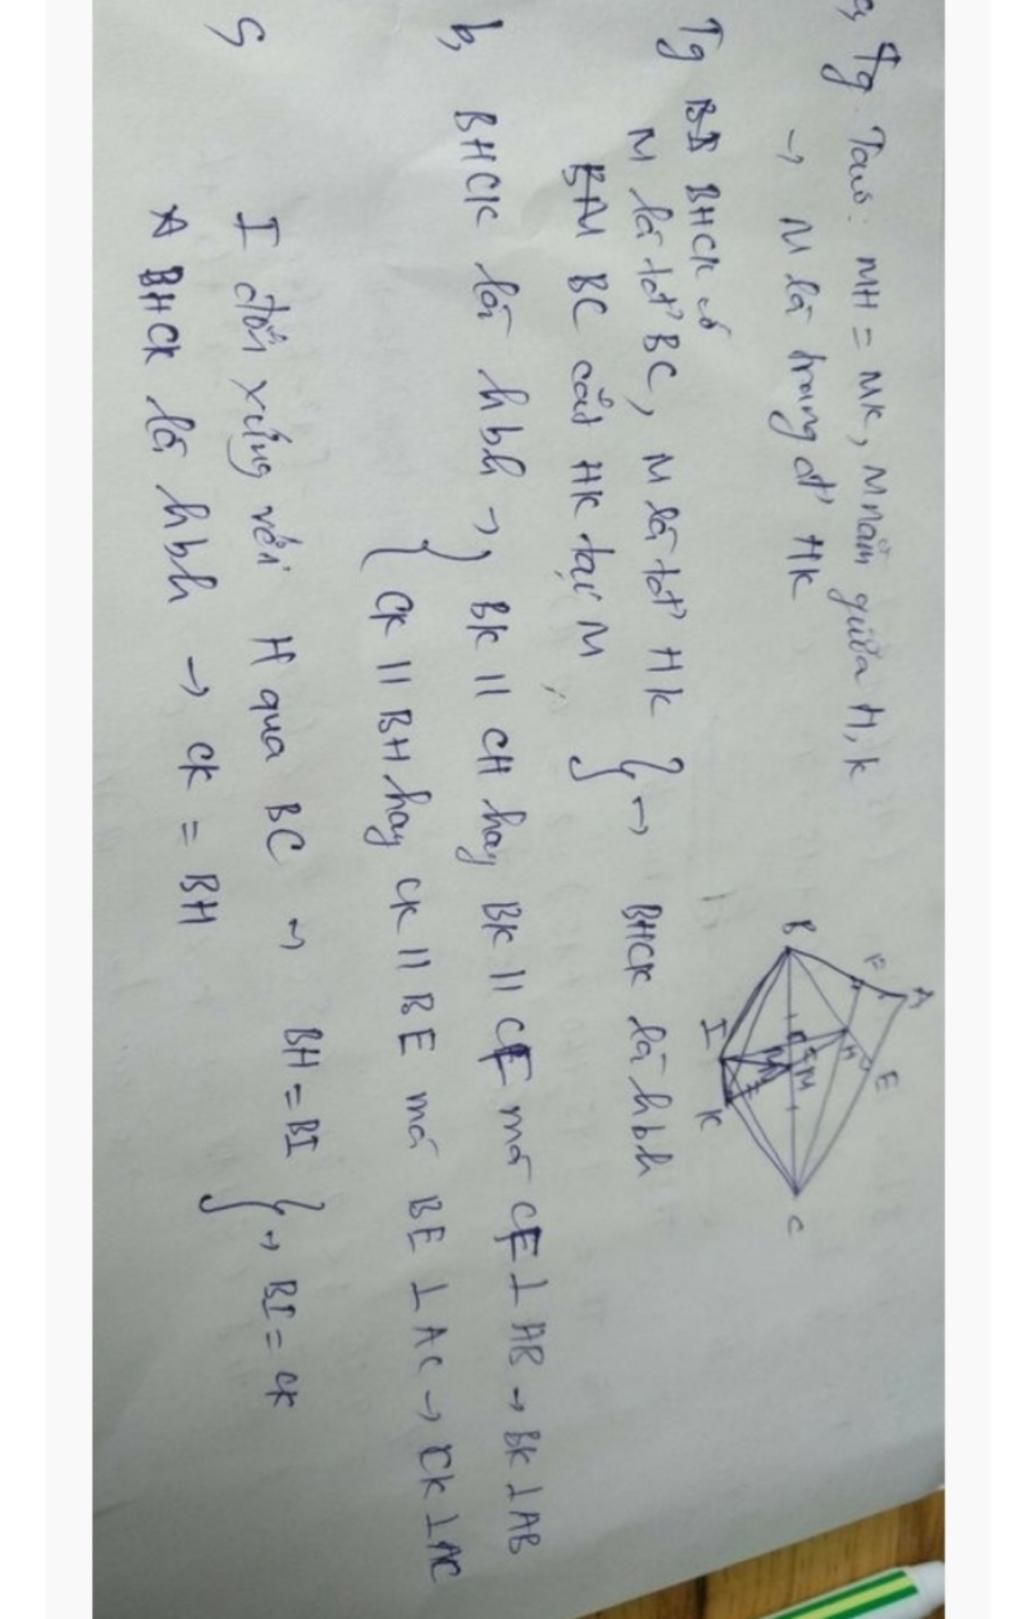 a, Tg Taco: MH = MK, M nằm giữa H, K
→ M là trung đ' HK
Tg BHCK có
M là tđ' BC, M là tđ' HK
BC cắt HK tại M
} → BHCK là hbh
b, BHCK là hbh → { BK // CH hay BK // CF mà CF ⊥ AB → BK ⊥ AB
CK // BH hay CK // BE mà BE ⊥ AC → CK ⊥ AC
c, I đối xứng với H qua BC → BH = BI
BHCK là hbh → CK = BH
} → BI = CK
A
F
E
B
H
M
C
I
K